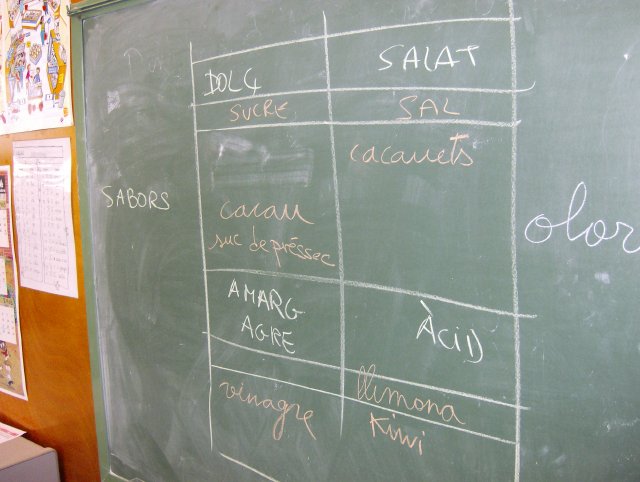 DOLÇ
SALAT
SUCRE
SAL
cacauets
SABORS
cacau
suc de préssec
olor
AMARG
AGRE
ÀCID
vinagre
llimona
Kiwi